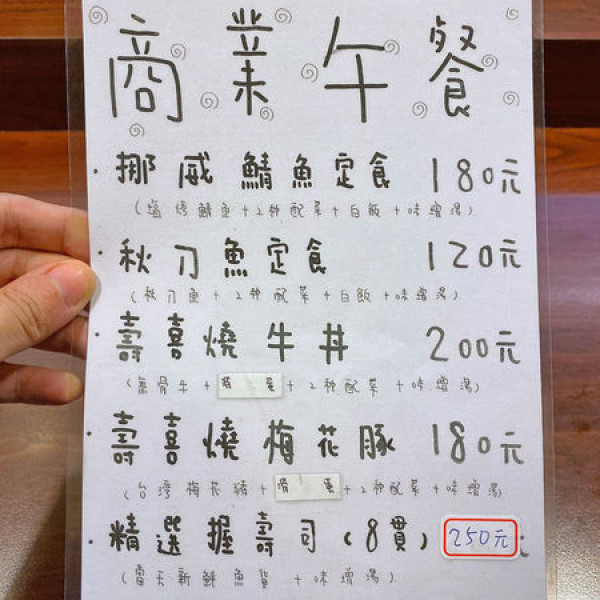 商業午餐
・挪威鯖魚定食 180元
(鹽烤鯖魚+2種配菜+白飯+味增湯)
・秋刀魚定食 120元
(秋刀魚+2种配菜+白飯+味增湯)
・壽喜燒牛丼 200元
(無骨牛+ 蛋+2种配菜+味增湯)
・壽喜燒梅花豚 180元
(台灣梅花豬+滑蛋+2种配菜+味增湯)
・精選握壽司(8貫) 250元
(當天新鮮魚貨+味增湯)